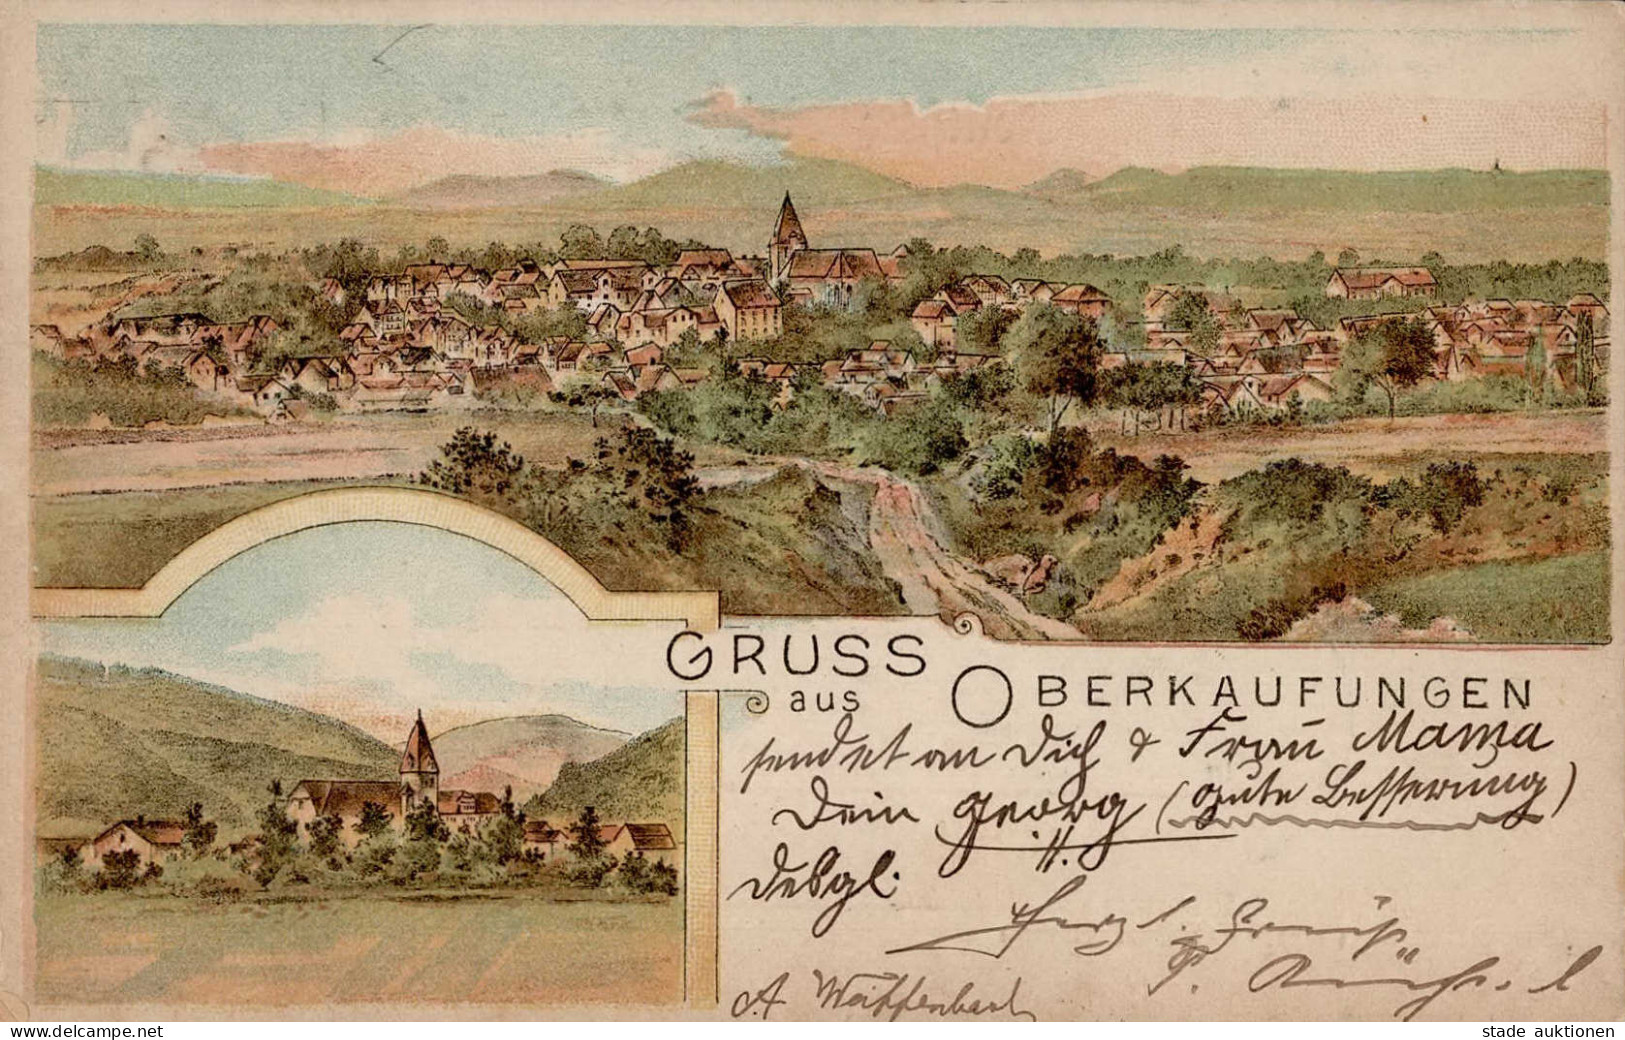 GRUSS
aus OBERKAUFUNGEN
sendet an Dich & Frau Mama
Dein Georg (gute Besserung)
Desgl.
Herzl. Gruß
A
www.delcampe.net
stade auktionen